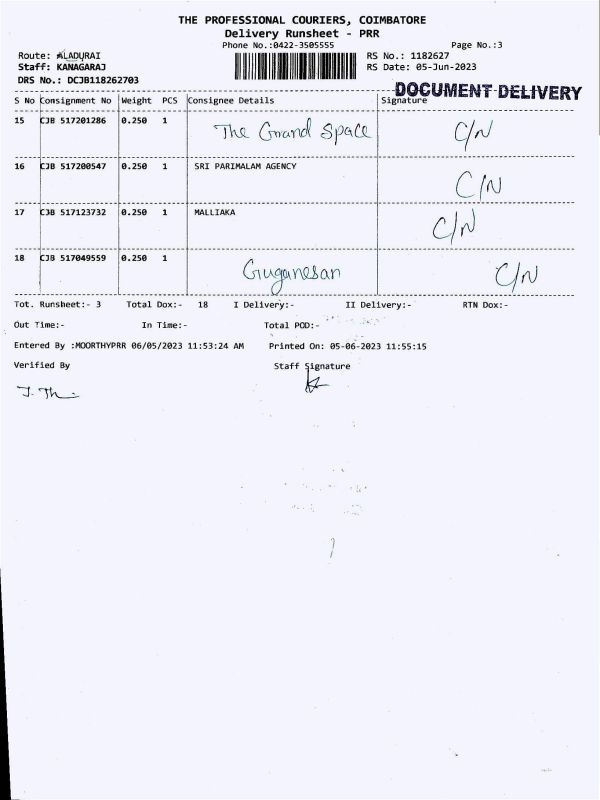 THE PROFESSIONAL COURIERS, COIMBATORE
Delivery Runsheet - PRR
Phone No.:0422-3505555 Page No.:3
Route: ALADURAI RS No.: 1182627
Staff: KANAGARAJ RS Date: 05-Jun-2023
DRS No.: DCJB118262703
DOCUMENT DELIVERY
S No Consignment No Weight PCS Consignee Details Signature
15 CJB 517201286 0.250 1 The Grand Space C/N
16 CJB 517200547 0.250 1 SRI PARIMALAM AGENCY C/N
17 CJB 517123732 0.250 1 MALLIAKA C/N
18 CJB 517049559 0.250 1 Guganesan C/N
Tot. Runsheet:- 3 Total Dox:- 18 I Delivery:- II Delivery:- RTN Dox:-
Out Time:- In Time:- Total POD:-
Entered By :MOORTHYPRR 06/05/2023 11:53:24 AM Printed On: 05-06-2023 11:55:15
Verified By Staff Signature